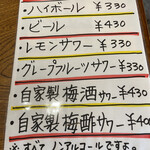 ・ハイボール ¥330
・ビール ¥430
・レモンサワー ¥330
・グレープフルーツサワー ¥330
・自家製梅酒サワー ¥430
・自家製梅酢サワー ¥400
※すべて ノンアルコールですよ。